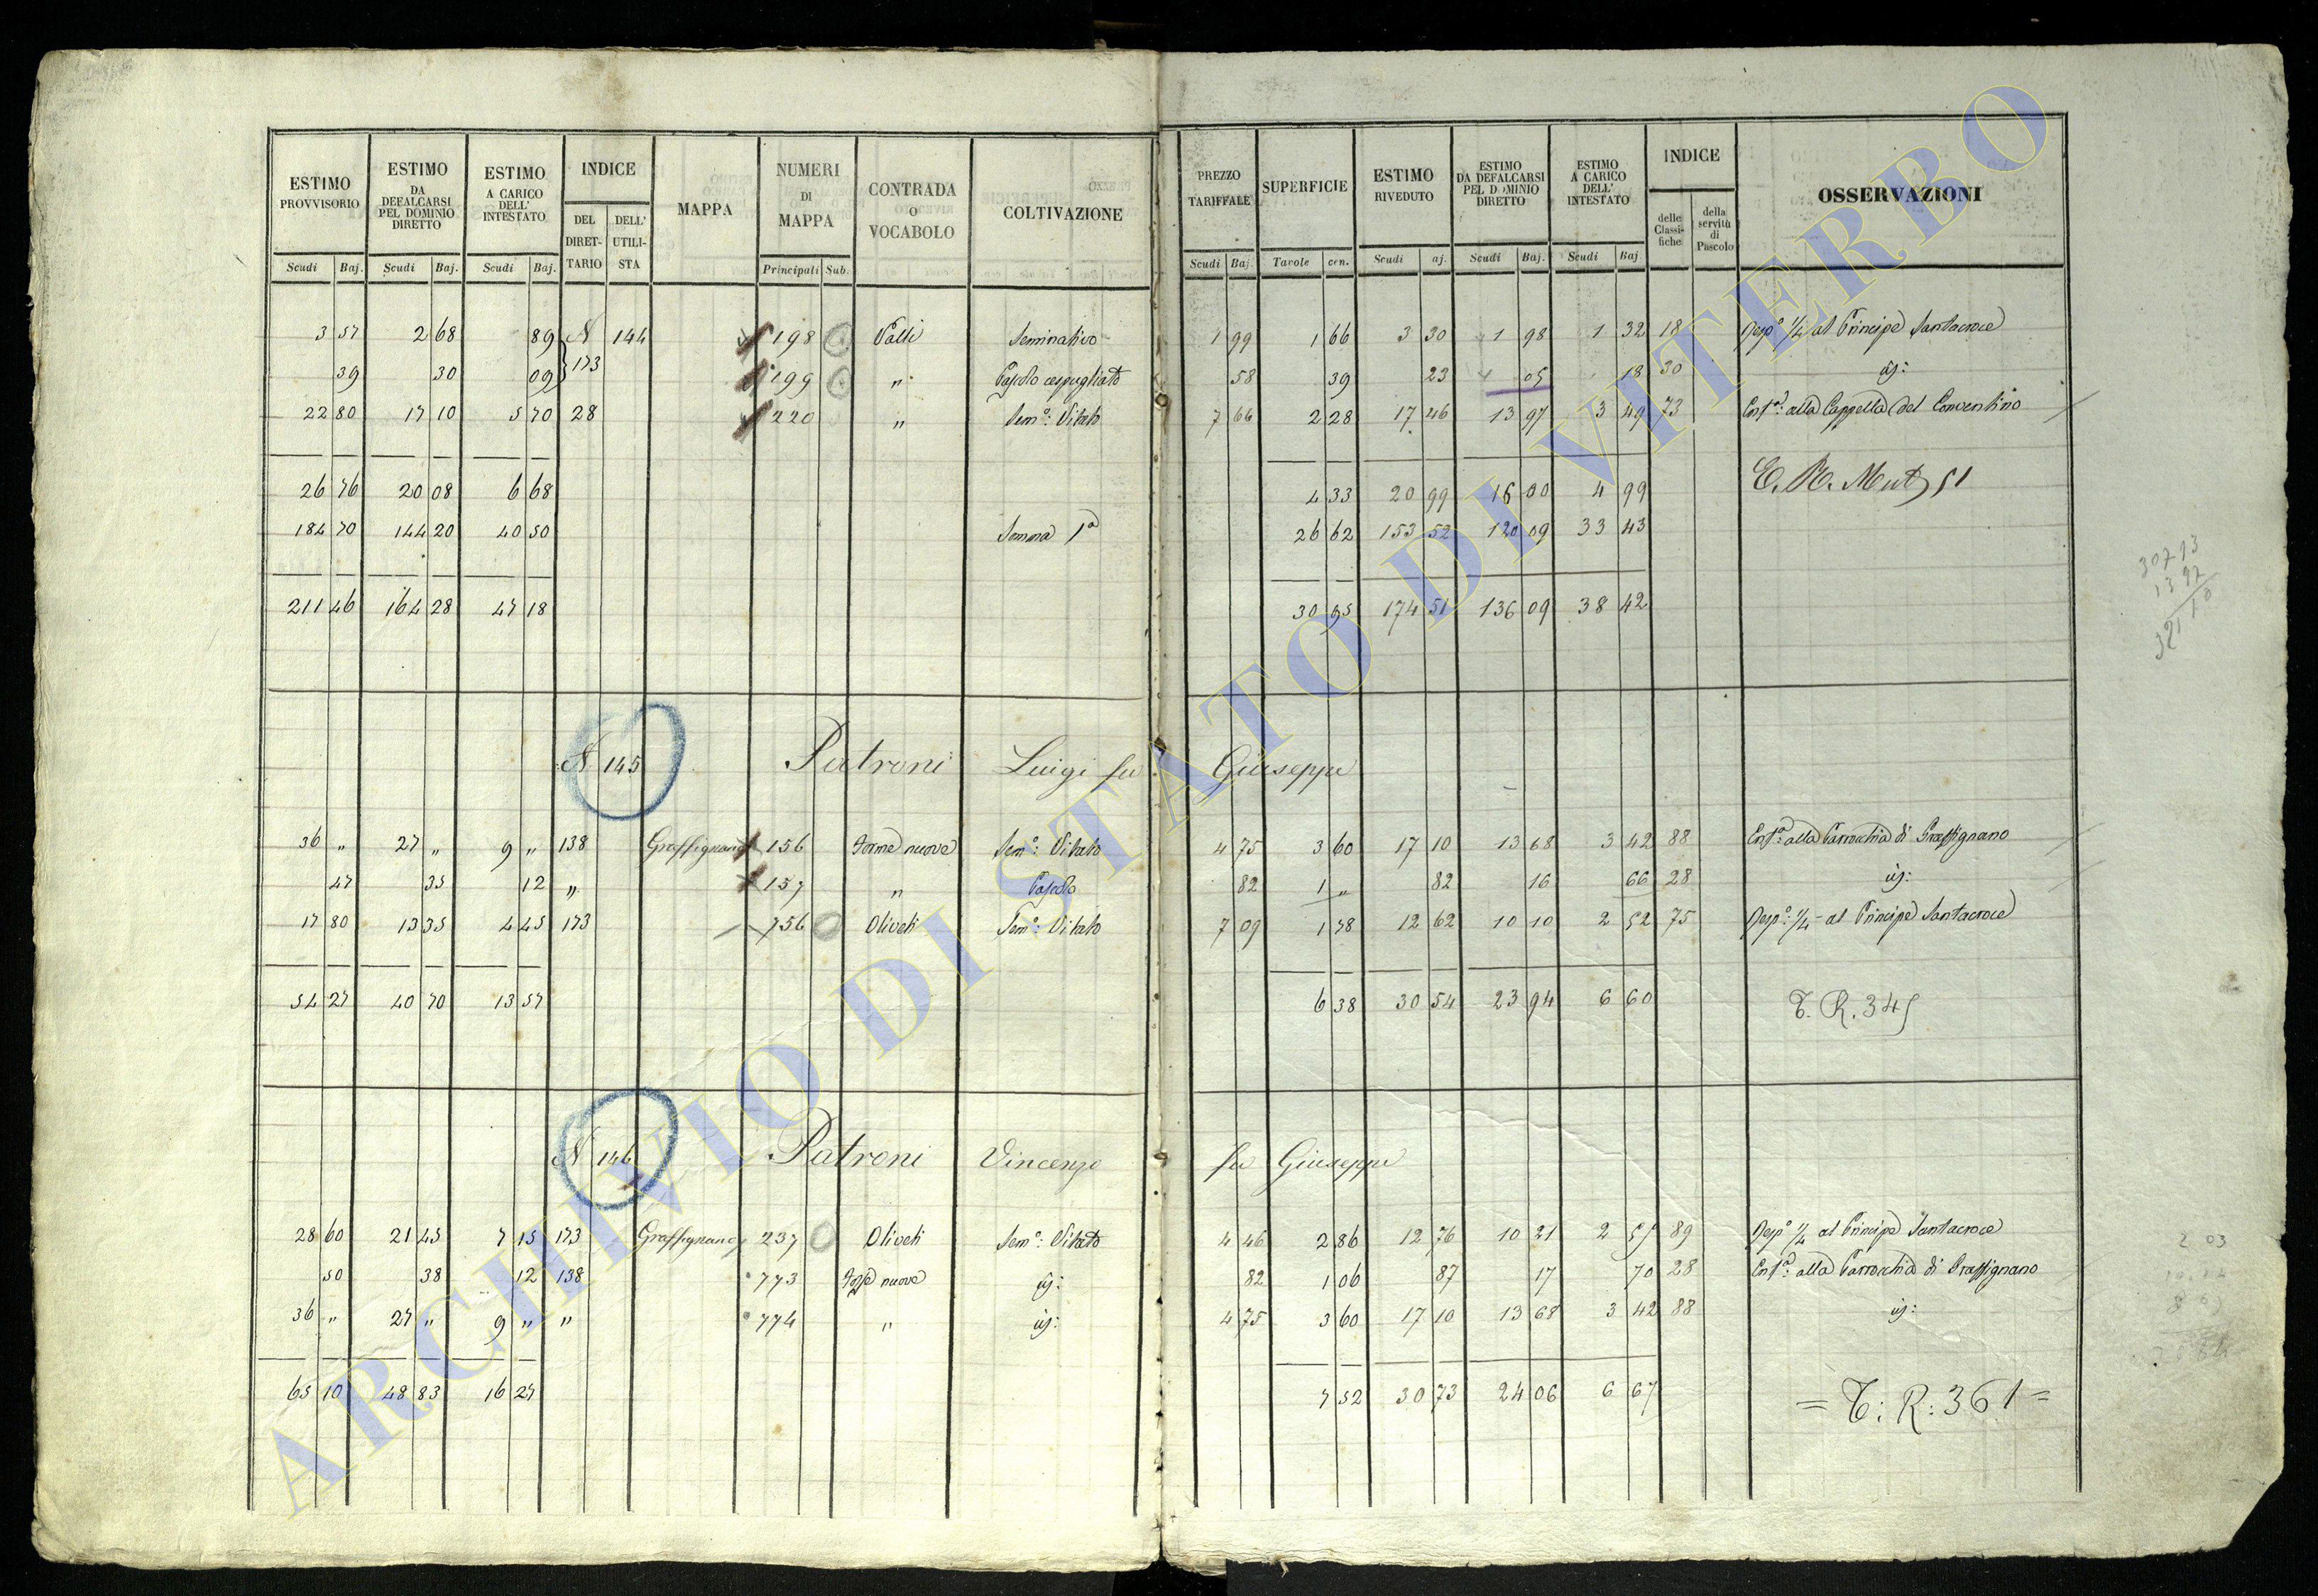 ESTIMO PROVVISORIO | ESTIMO DA DEFALCARSI PEL DOMINIO DIRETTO | ESTIMO A CARICO DELL' INTESTATO | INDICE | MAPPA | NUMERI DI MAPPA | CONTRADA O VOCABOLO | COLTIVAZIONE | PREZZO TARIFFALE | SUPERFICIE | ESTIMO RIVEDUTO | ESTIMO DA DEFALCARSI PEL DOMINIO DIRETTO | ESTIMO A CARICO DELL' INTESTATO | INDICE | OSSERVAZIONI
DEL DIRETTARIO | DELL' UTILISTA | delle Classifiche | della servitù di Pascolo
Scudi | Baj. | Scudi | Baj. | Scudi | Baj. | Principali | Sub. | Scudi | Baj. | Tavole | cen. | Scudi | aj. | Scudi | Baj. | Scudi | Baj
3 57 | 2 68 | 89 | N 173 | 144 | 198 | Valli | Seminativo | 1 99 | 1 66 | 3 30 | 1 98 | 1 32 | 18 | Resp.e 1/4 al Principe Santacroce
39 | 30 | 09 | 199 | " | Pascolo cespugliato | 58 | 39 | 23 | 05 | 18 | 30 | id:
22 80 | 17 10 | 5 70 | 28 | 220 | " | Sem.o: Vitato | 7 66 | 2 28 | 17 46 | 13 97 | 3 49 | 73 | Enf.a: alla Cappella del Conventino
26 76 | 20 08 | 6 68 | 4 33 | 20 99 | 16 00 | 4 99 | E. R. Mut 51
184 70 | 144 20 | 40 50 | Somma 1a | 26 62 | 153 52 | 120 09 | 33 43
211 46 | 164 28 | 47 18 | 30 95 | 174 51 | 136 09 | 38 42
30713
1397
32110
N 145 Patroni Luigi fu Giuseppe
36 " | 27 " | 9 " | 138 | Graffignano | 156 | Forme nuove | Sem.o: Vitato | 4 75 | 3 60 | 17 10 | 13 68 | 3 42 | 88 | Enf.a: alla Parrocchia di Graffignano
47 | 35 | 12 | " | 157 | " | Pascolo | 82 | 1 " | 82 | 16 | 66 | 28 | id:
17 80 | 13 35 | 4 45 | 173 | 756 | Oliveti | Sem.o: Vitato | 7 09 | 1 78 | 12 62 | 10 10 | 2 52 | 75 | Resp.e: 1/4 al Principe Santacroce
54 27 | 40 70 | 13 57 | 6 38 | 30 54 | 23 94 | 6 60 | T. R. 345
N 146 Patroni Vincenzo fu Giuseppe
28 60 | 21 45 | 7 15 | 173 | Graffignano | 237 | Oliveti | Sem.o: Vitato | 4 46 | 2 86 | 12 76 | 10 21 | 2 55 | 89 | Resp.e 1/4 al Principe Santacroce
50 | 38 | 12 | 138 | 773 | nuove | id: | 82 | 1 06 | 87 | 17 | 70 | 28 | Enf.a: alla Parrocchia di Graffignano
36 " | 27 " | 9 " | " | 774 | " | id: | 4 75 | 3 60 | 17 10 | 13 68 | 3 42 | 88 | id:
65 10 | 48 83 | 16 27 | 7 52 | 30 73 | 24 06 | 6 67 | = T: R: 361 =
2 03
ARCHIVIO DI STATO DI VITERBO